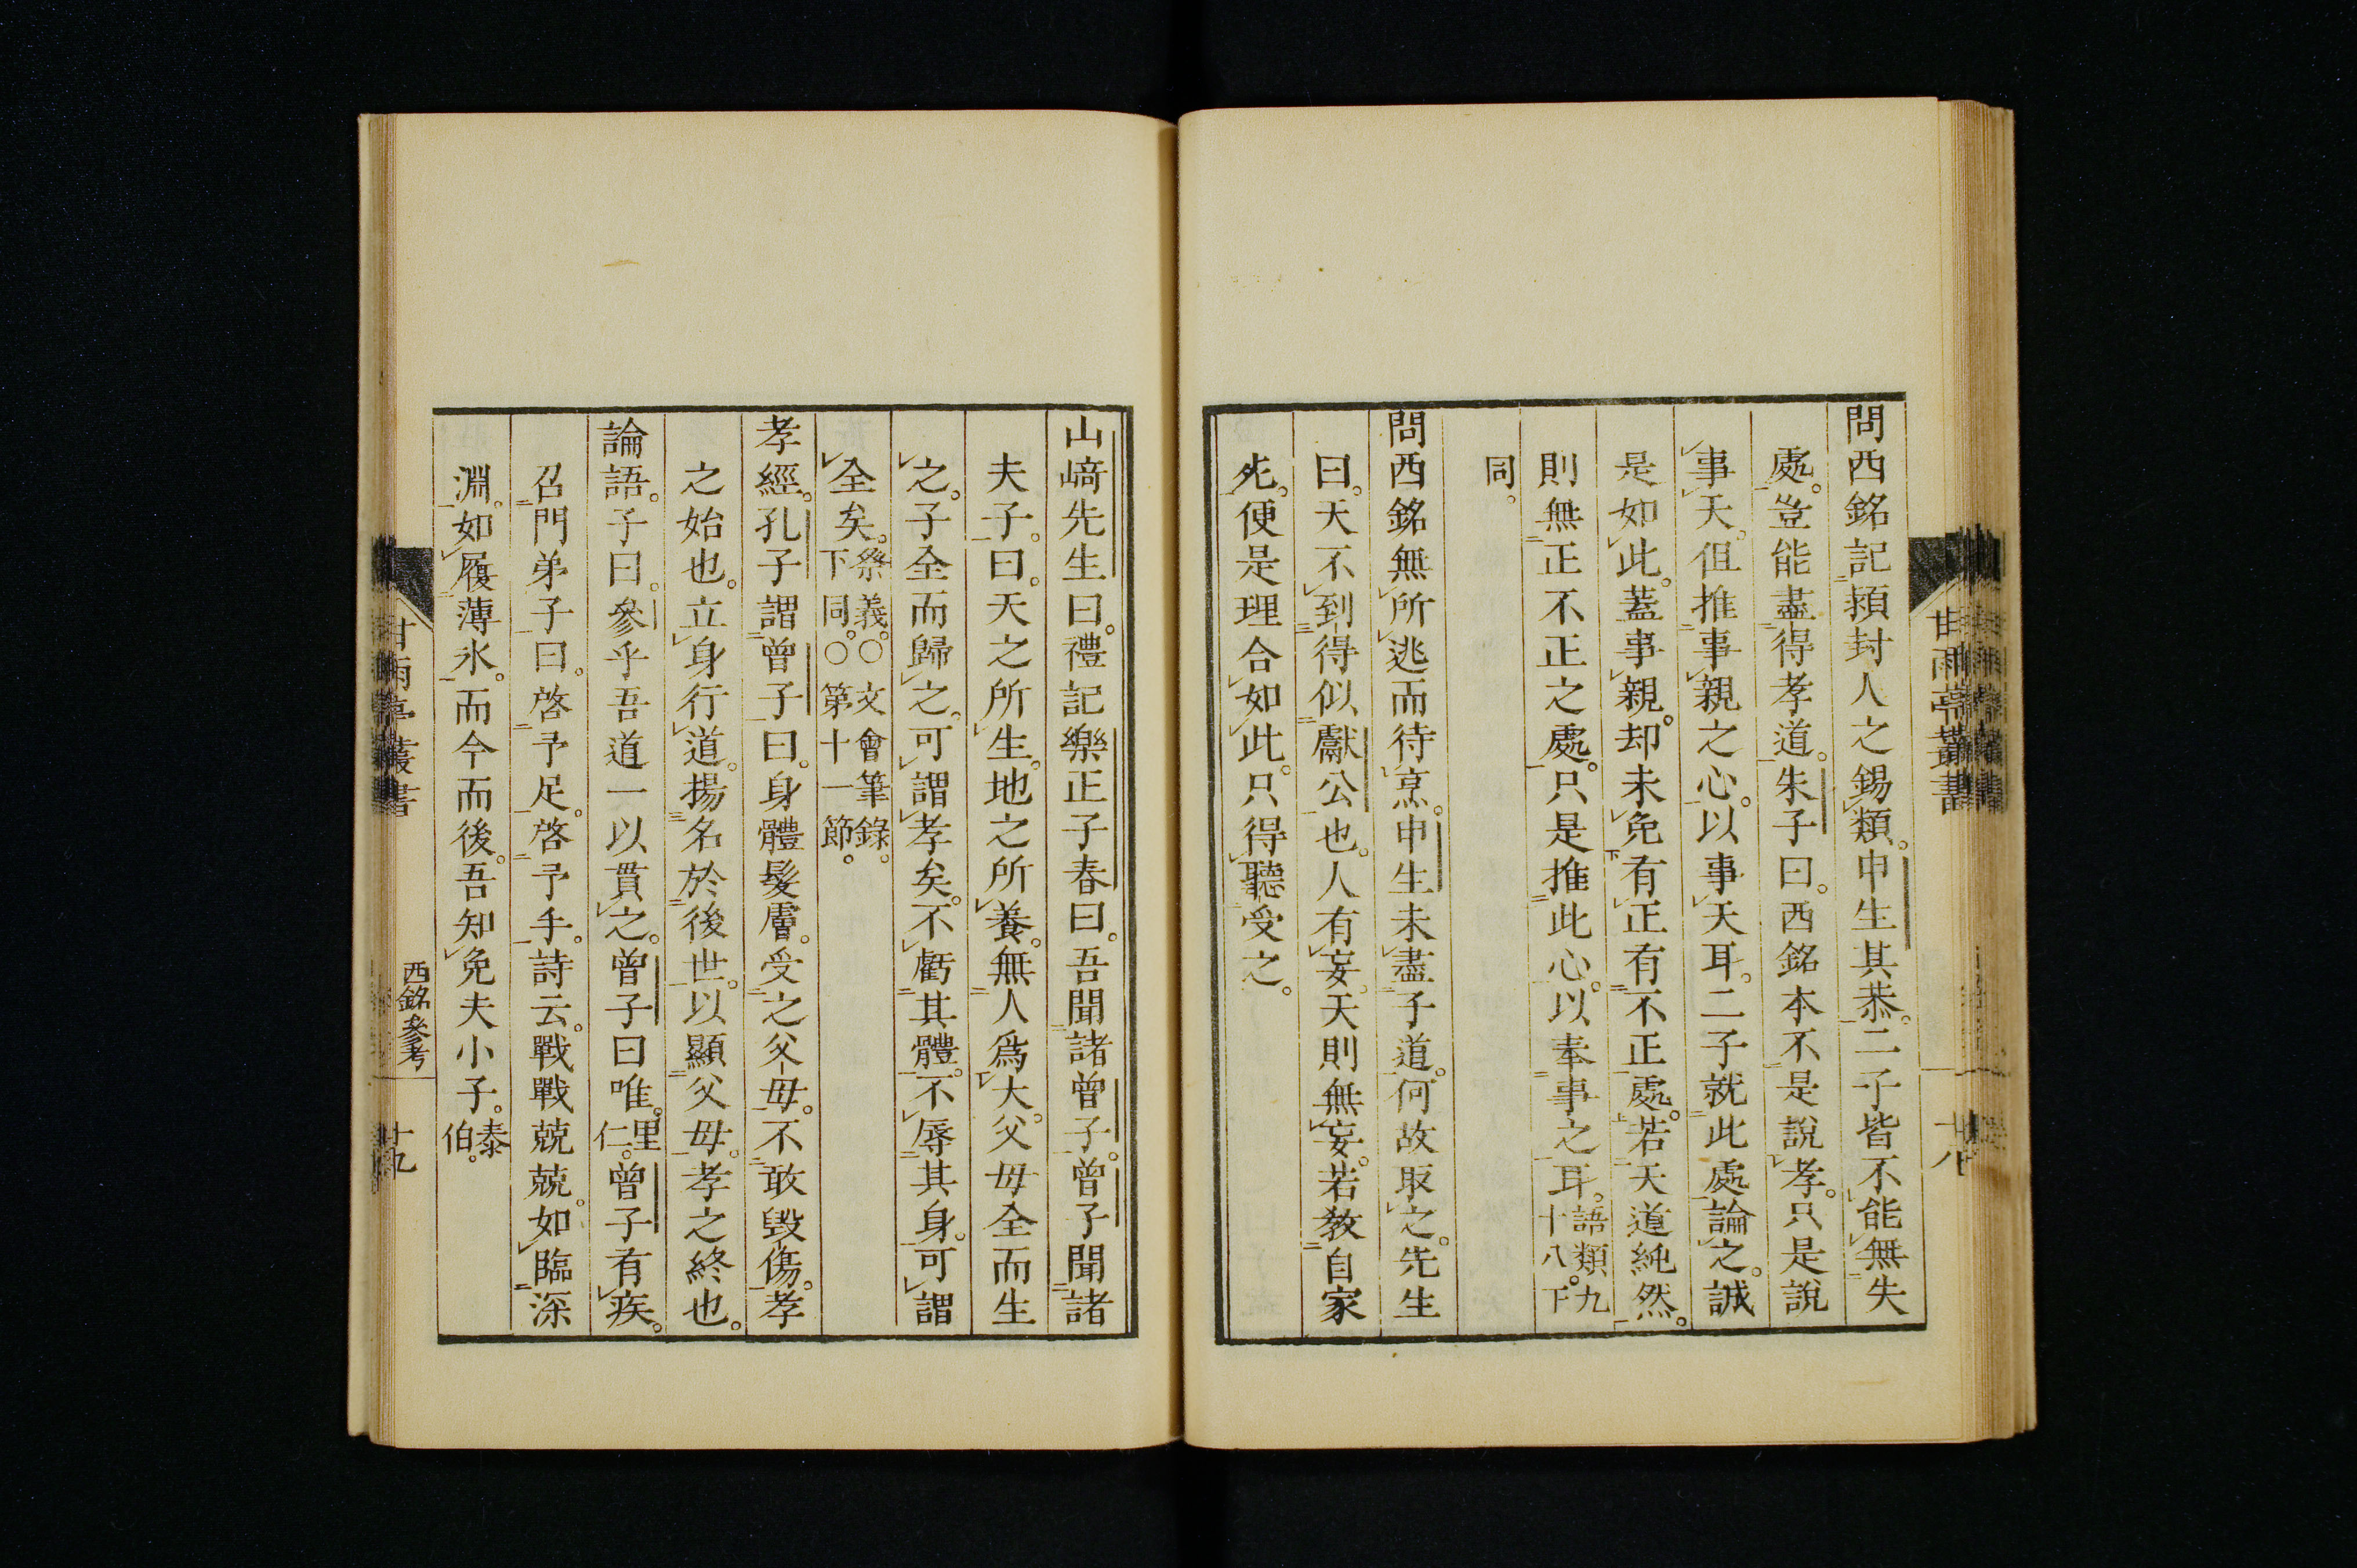 問西銘記頴封人之錫類。申生其恭。二子皆不能無失
處。豈能盡得孝道。朱子曰。西銘本不是說孝。只是說
事天。但推事親之心。以事天耳。二子就此處論之。誠
是如此。蓋事親。却未免有正有不正處。若天道純然。
則無正不正之處。只是推此心。以奉事之耳。語類九
十八。下
同。
問西銘無所逃而待烹。申生未盡子道。何故取之。先生
曰。天不到得似獻公也。人有妄。天則無妄。若教自家
死。便是理合如此。只得聽受之。
甘雨亭叢書
十八
山﨑先生曰。禮記樂正子春曰。吾聞諸曾子。曾子聞諸
夫子。曰。天之所生。地之所養。無人爲大。父母全而生
之。子全而歸之。可謂孝矣。不虧其體。不辱其身。可謂
全矣。祭義。○文會筆錄。
下同。○第十一節。
孝經。孔子謂曾子曰。身體髮膚。受之父母。不敢毀傷。孝
之始也。立身行道。揚名於後世。以顯父母。孝之終也。
論語。子曰。參乎吾道一以貫之。曾子曰唯。里
仁。曾子有疾。
召門弟子曰。啓予足。啓予手。詩云。戰戰兢兢。如臨深
淵。如履薄氷。而今而後。吾知免夫小子。泰
伯。
甘雨亭叢書
西銘參考
十九